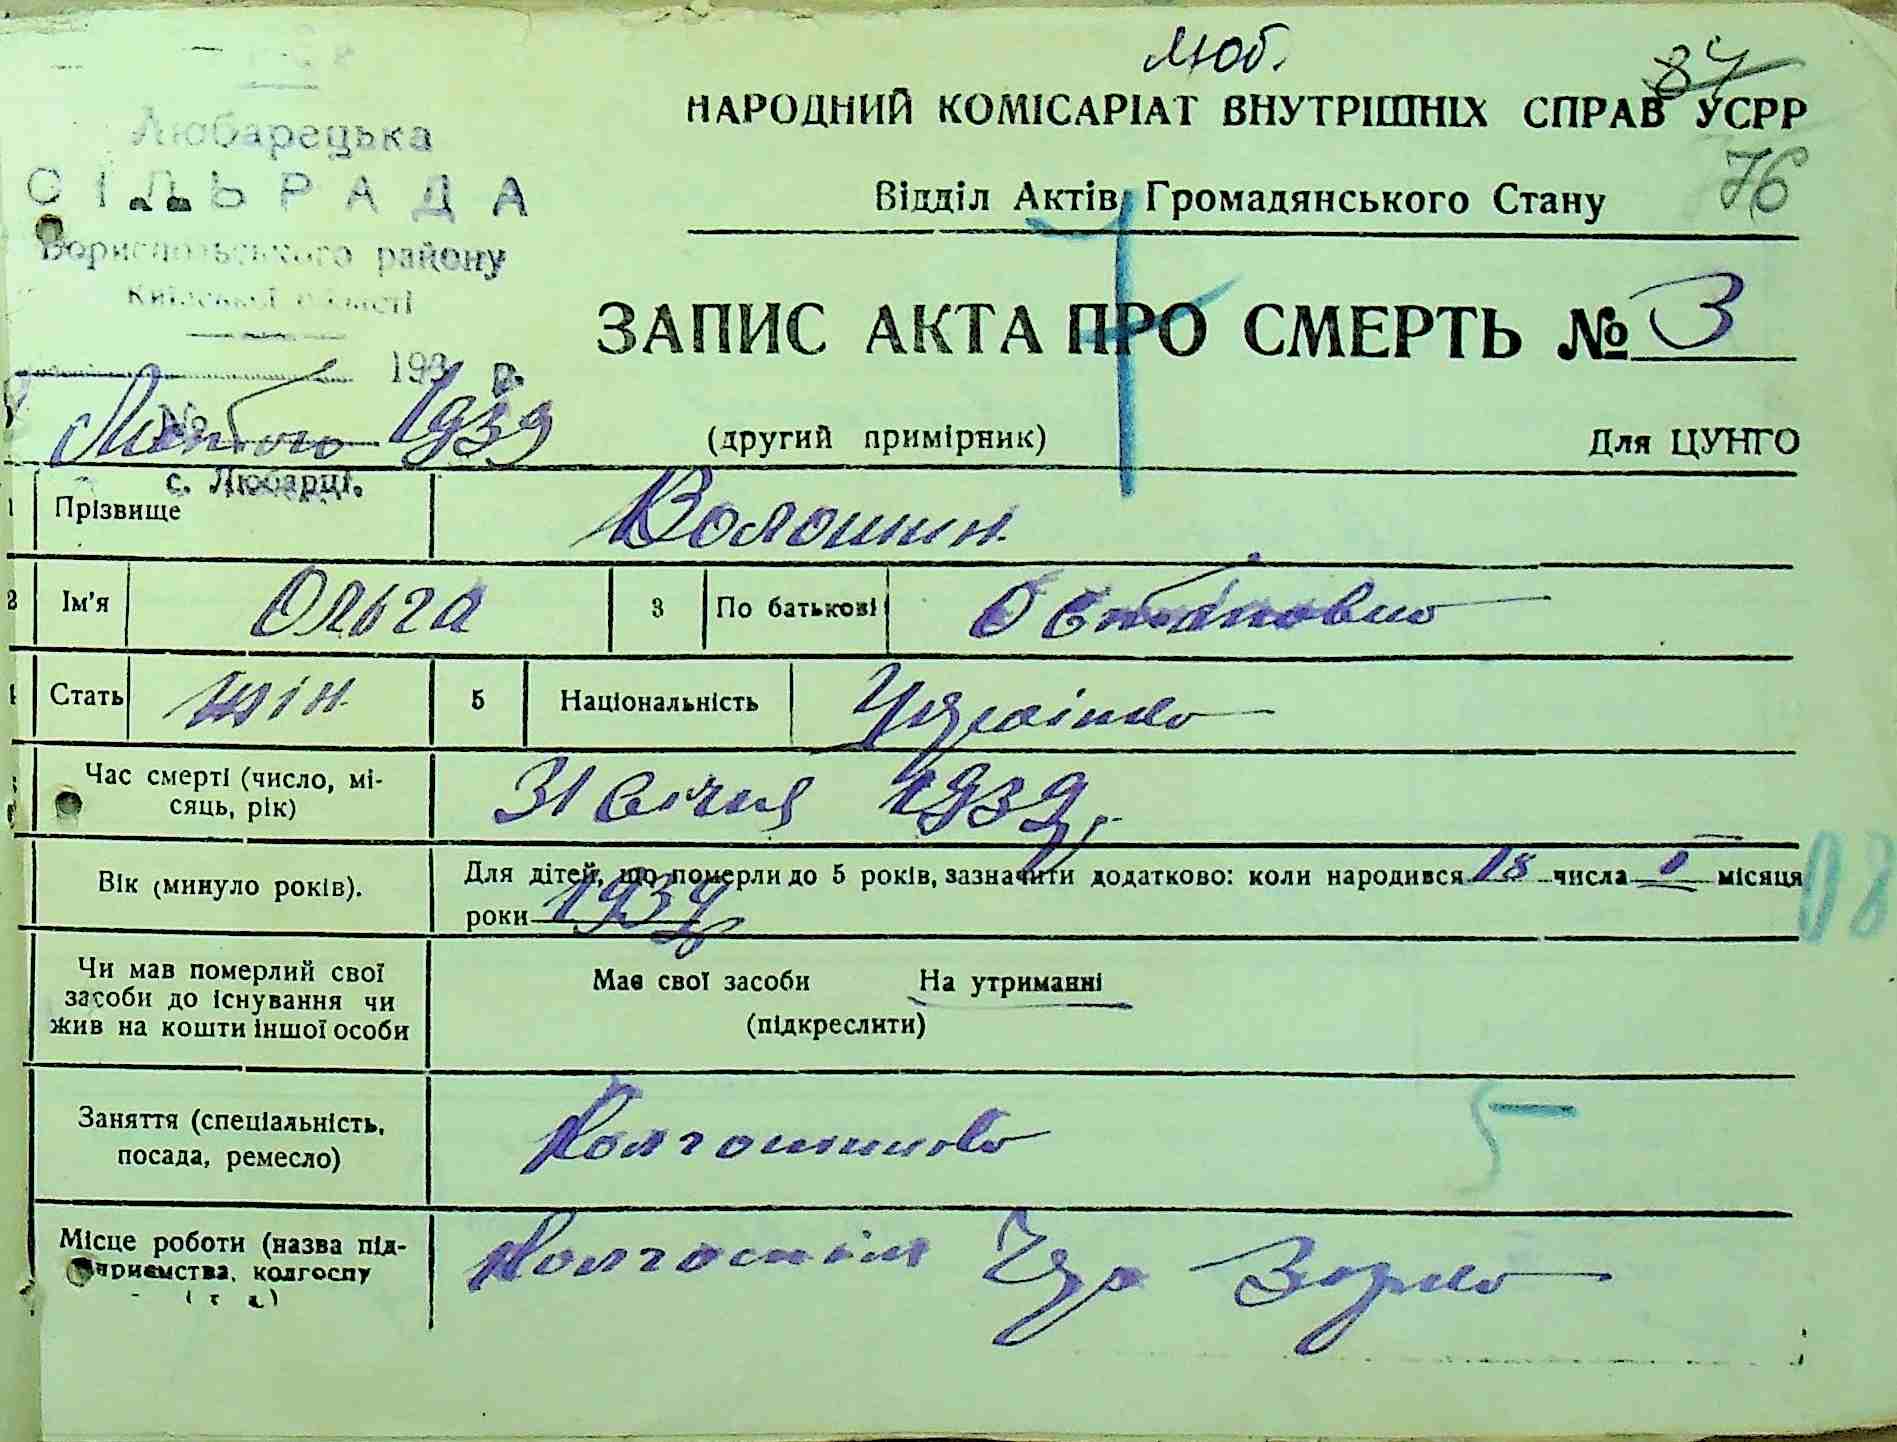 Люб.
84
НАРОДНИЙ КОМІСАРІАТ ВНУТРІШНІХ СПРАВ УСРР
76
Відділ Актів Громадянського Стану
Любарецька
СІЛЬРАДА
Бориспольського району
Київської області
193 р.
№
Лютого 1939
с. Любарці.
ЗАПИС АКТА ПРО СМЕРТЬ № 3
(другий примірник) Для ЦУНГО
1 Прізвище Волошин
2 Ім'я Ольга 3 По батькові Остаповно
4 Стать жін. 5 Національність Українко
Час смерті (число, мі-
сяць, рік) 31 Січня 1939 р.
Вік (минуло років). Для дітей, що померли до 5 років, зазначити додатково: коли народився 18 числа I місяця
роки 1939
08
Чи мав померлий свої
засоби до існування чи
жив на кошти іншої особи
Має свої засоби На утриманні
(підкреслити)
Заняття (спеціальність,
посада, ремесло) Колгоспников
5
Місце роботи (назва під-
приємства, колгоспу
і т. д.)
Колгоспі